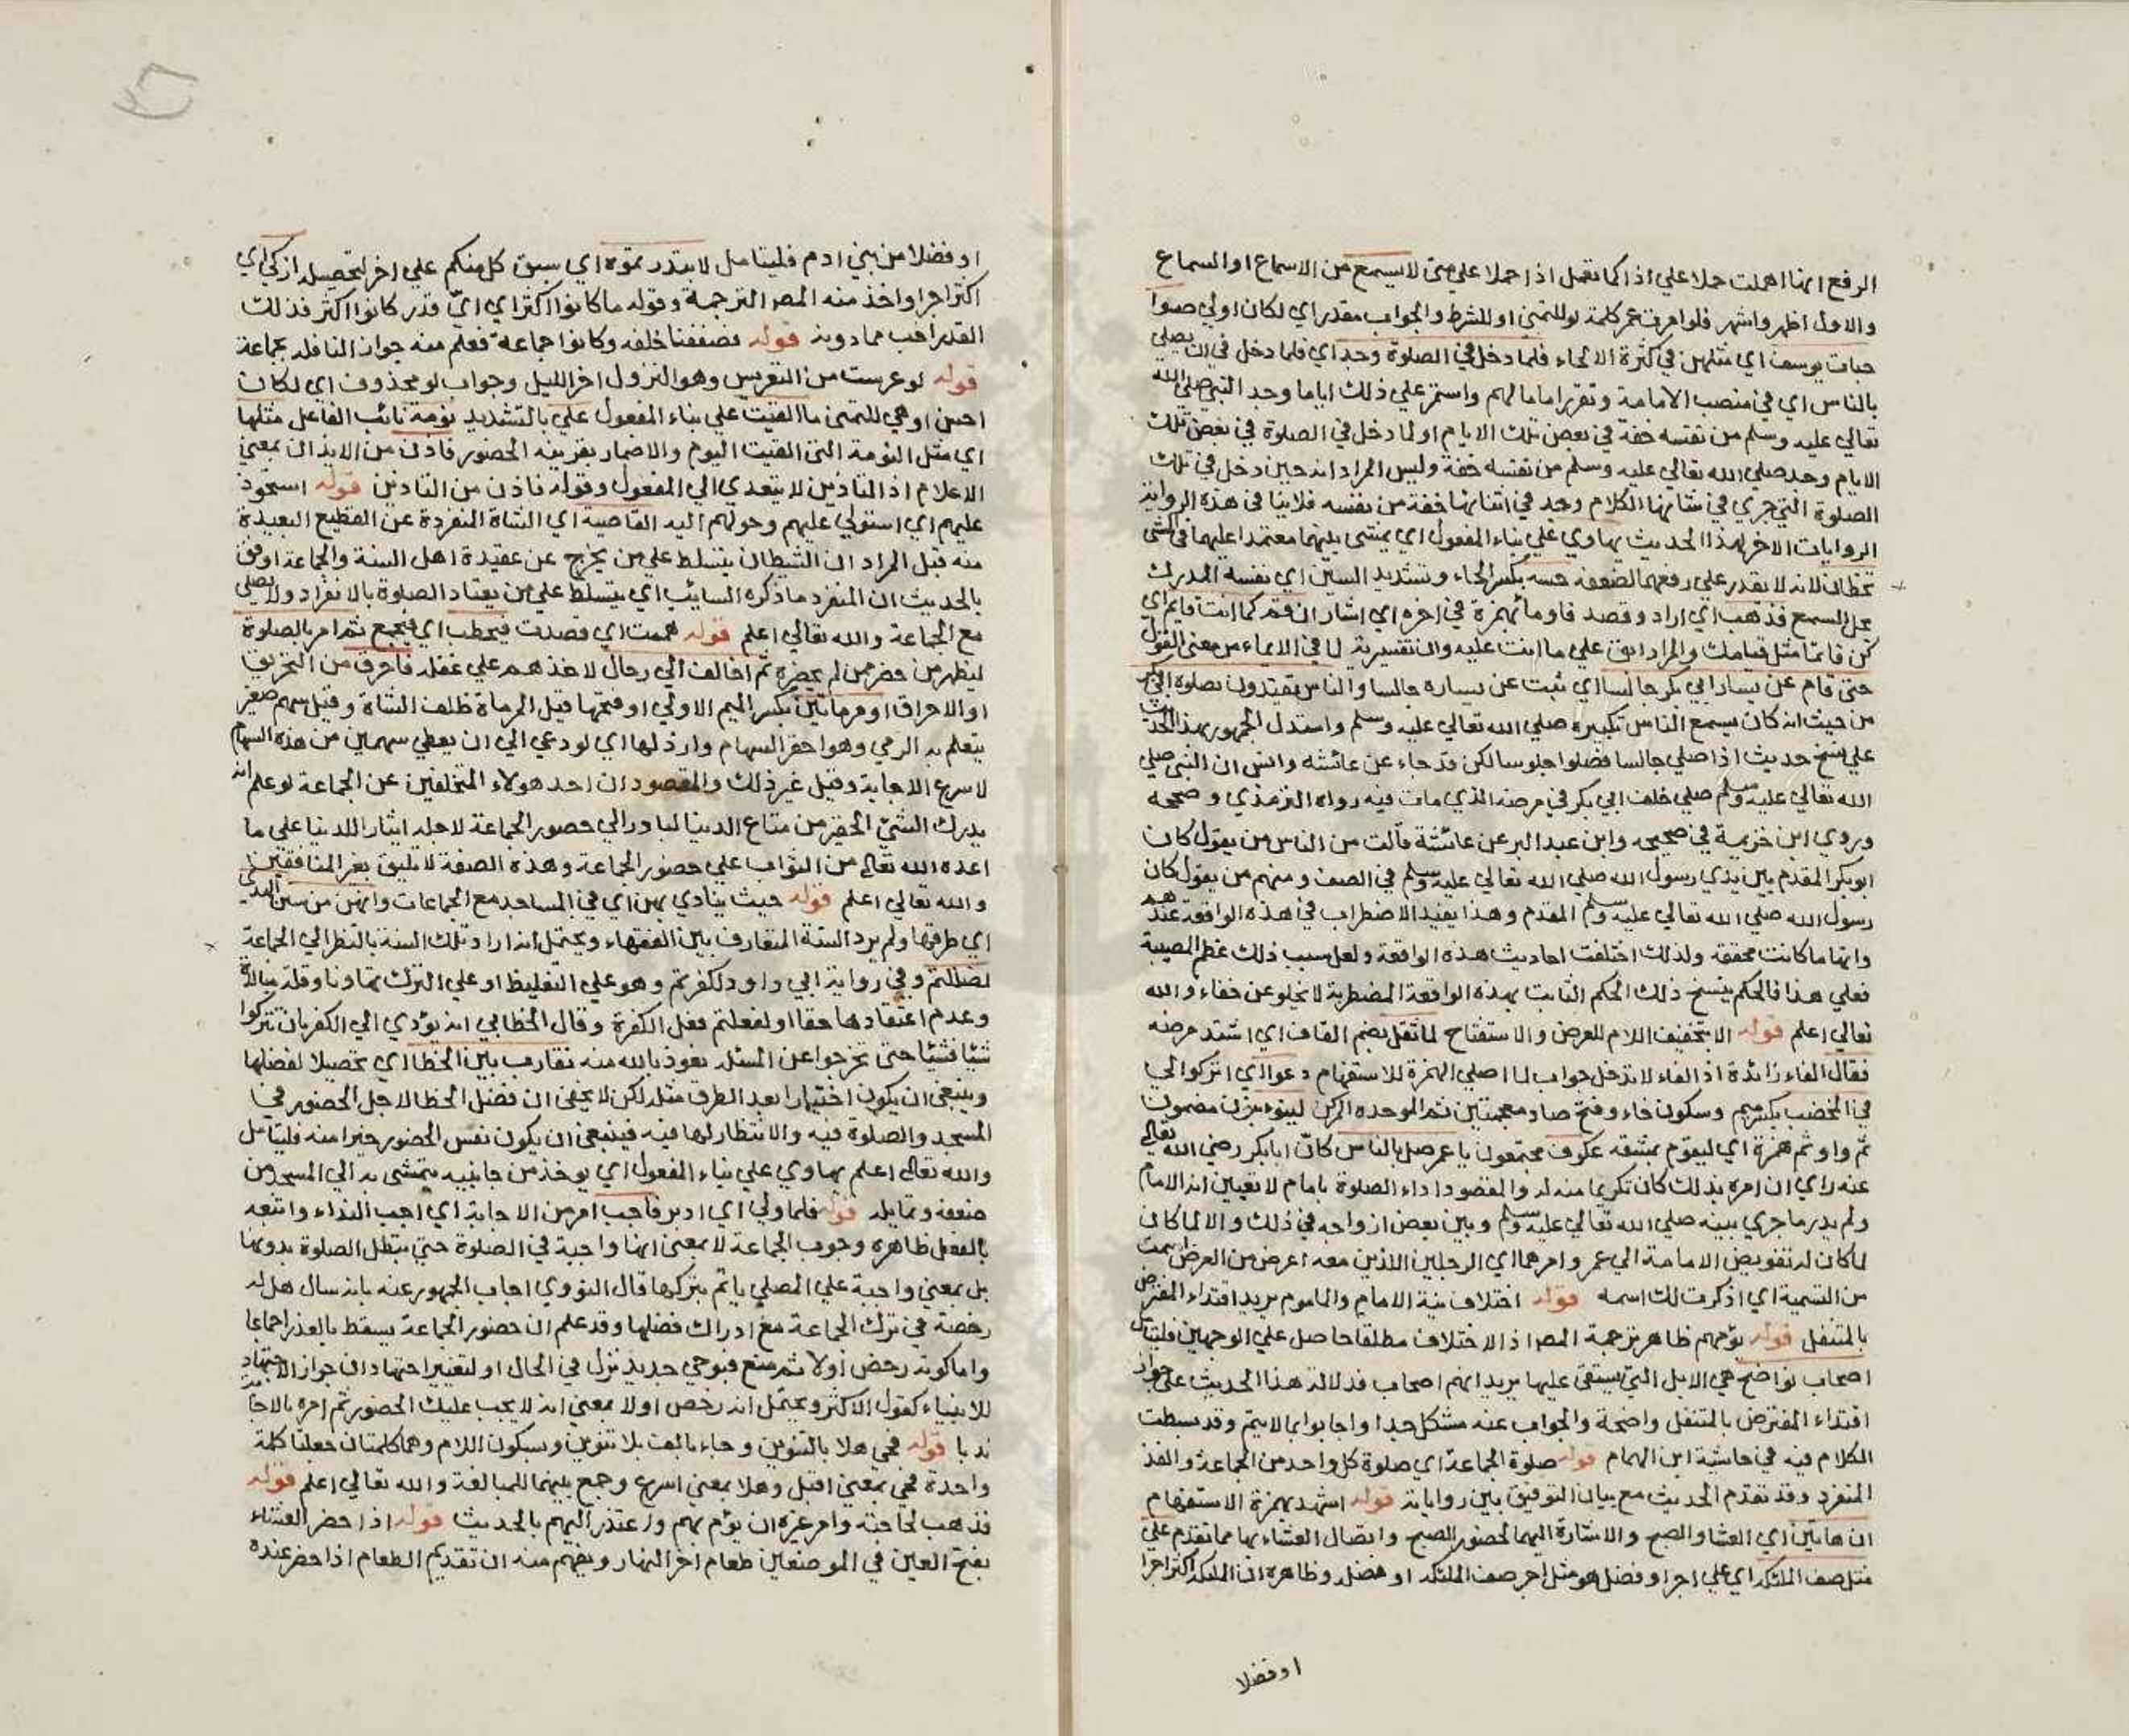 الرفع انها اهملت حملا علي اذا كما تعمل اذا حملا علي متى لا يسمع من الاسماع او السماع
والاول اظهر واشهر فلو امرت عمر كلمة لو للتمني او للشرط والجواب مقدر اي لكان اولي صوا
حبات يوسف اي مثلهن في كثرة الالحاء فلما دخل في الصلوة وجد اي فلما دخل في ان يصلي
بالناس اي في منصب الامامة وتقرر اماما لهم واستمر علي ذلك اياما وجد النبي صلي الله
تعالي عليه وسلم من نفسه خفة في بعض تلك الايام او لما دخل في الصلوة في بعض تلك
الايام وجد صلي الله تعالي عليه وسلم من نفسه خفة وليس المراد انه حين دخل في تلك
الصلوة التي جري في شانها الكلام وجد في اثنائها خفة من نفسه فلا ينافي هذه الرواية
الروايات الاخر لهذا الحديث يهادي علي بناء المفعول اي يمشي بينهما معتمدا عليهما في المشي
تخطان لانه لا يقدر علي رفعهما لضعفه حسه بكسر الحاء وتشديد السين اي نفسه المدرك
بحل السمع فذهب اي اراد وقصد فاومأ بهمزة في اخره اي اشار ان قم كما انت قايم اي
كن قائما مثل قيامك والمراد ابق علي ما انت عليه وان تفسيرية لما في الايماء من معنى القول
حتى قام عن يسار ابي بكر جالسا اي ثبت عن يساره جالسا والناس يقتدون بصلوة ابي بكر
من حيث انه كان يسمع الناس تكبيره صلي الله تعالي عليه وسلم واستدل الجمهور بهذا الحديث
علي نسخ حديث اذا صلي جالسا فصلوا جلوسا لكن قد جاء عن عائشة وانس ان النبي صلي
الله تعالي عليه وسلم صلي خلف ابي بكر في مرضه الذي مات فيه رواه الترمذي وصححه
وروي ابن خزيمة في صحيحه وابن عبد البر عن عائشة قالت من الناس من يقول كان
ابو بكر المقدم بين يدي رسول الله صلي الله تعالي عليه وسلم في الصف ومنهم من يقول كان
رسول الله صلي الله تعالي عليه وسلم المقدم وهذا يفيد الاضطراب في هذه الواقعة عندهم
وانها ما كانت محققة ولذلك اختلفت احاديث هذه الواقعة ولعل سبب ذلك عظم المصيبة
فعلي هذا فالحكم بنسخ ذلك الحكم الثابت بهذه الواقعة المضطربة لا يخلو عن خفاء والله
تعالي اعلم قوله الا بتخفيف اللام للعرض والاستفتاح لما ثقل بضم القاف اي اشتد مرضه
فقال الفاء زائدة اذ الفاء لا تدخل جواب لما اصلي الهمزة للاستفهام دعوا اي اتركوا لي
في المخضب بكسر ميم وسكون خاء وفتح ضاد معجمتين ثم الموحده المركن لينوء بنون مضمومة
ثم واو ثم همزة اي ليقوم بمشقة عكوف مجتمعون يا عمر صل بالناس كان ابا بكر رضي الله تعالي
عنه راي ان امره بذلك كان تكريما منه له والمقصود اداء الصلوة بامام لا تعيين انه الامام
ولم يدر ما جري بينه صلي الله تعالي عليه وسلم وبين بعض ازواجه في ذلك والا لما كان
لما كان له تفويض الامامة الي عمر وامرهما اي الرجلين اللذين معه اعرض من العرض سمت
من التسمية اي اذكرت لك اسمه قوله اختلاف نية الامام والماموم يريد اقتداء المفترض
بالمتنفل قوله يؤمهم ظاهر ترجمة المصر اذ الاختلاف مطلقا حاصل علي الوجهين فليتامل
اصحاب نواضح هي الابل التي يستقى عليها يريد انهم اصحاب فدلالة هذا الحديث على جواز
اقتداء المفترض بالمتنفل واضحة والجواب عنه مشكل جدا واجابوا بما لا يتم وقد بسطت
الكلام فيه في حاشية ابن الهمام قوله صلوة الجماعة اي صلوة كل واحد من الجماعة والفذ
المنفرد وقد تقدم الحديث مع بيان التوفيق بين رواياته قوله اشهد بهمزة الاستفهام
ان هاتين اي العشا والصبح والاشارة اليهما لحضور الصبح واتصال العشاء بها مما تقدم علي
مثل صف الملئكة اي علي اجر او فضل هو مثل اجر صف الملئكة او فضله وظاهره ان الملئكة اكثر اجرا
او فضلا
او فضلا من بني ادم فليتامل لابتدرتموه اي سبق كل منكم علي اخر لتحصيله ازكي اي
اكثر اجرا واخذ منه المصر الترجمة وقوله ما كانوا اكثر اي اي قدر كانوا اكثر فذلك
القدر احب مما دونه قوله فصففنا خلفه وكانوا جماعة فعلم منه جواز النافلة بجماعة
قوله لو عرست من التعريس وهو النزول اخر الليل وجواب لو محذوف اي لكان
احسن او هي للتمني ما القيت علي بناء المفعول علي بالتشديد نومة نائب الفاعل مثلها
اي مثل النومة التى القيت اليوم والاضمار بقرينة الحضور فاذن من الايذان بمعني
الاعلام اذ التاذين لا يتعدي الي المفعول وقوله فاذن من التاذين قوله استحوذ
عليهم اي استولي عليهم وحولهم اليه القاصية اي الشاة المنفردة عن القطيع البعيدة
منه قيل المراد ان الشيطان يتسلط علي من يخرج عن عقيدة اهل السنة والجماعة اوفق
بالحديث ان المنفرد ما ذكره السايب اي يتسلط علي من يعتاد الصلوة بالانفراد ولا يصلي
مع الجماعة والله تعالي اعلم قوله هممت اي قصدت فيحطب اي فيجمع ثم امر بالصلوة
ليظهر من حضر ممن لم يحضره ثم اخالف الي رجال لاخذهم علي غفلة فاحرق من التحريق
او الاحراق او مرماتين بكسر الميم الاولي او فتحها قيل المرماة ظلف الشاة وقيل سهم صغير
يتعلم به الرمي وهو احقر السهام وارذلها اي لو دعي الي ان يعطي سهمين من هذه السهام
لاسرع الاجابة وقيل غير ذلك والمقصود ان احد هولاء المتخلفين عن الجماعة لو علم انه
يدرك الشئ الحقير من متاع الدنيا لبادر الي حضور الجماعة لاجله ايثارا للدنيا علي ما
اعده الله تعالى من الثواب علي حضور الجماعة وهذه الصفة لا تليق بغير المنافقين
والله تعالي اعلم قوله حيث ينادي بهن اي في المساجد مع الجماعات وانهن من سنن الهدى
اي طرقها ولم يرد السنة المتعارف بين الفقهاء ويحتمل انه اراد تلك السنة بالنظر الي الجماعة
لضللتم وفي رواية ابي داود لكفرتم وهو علي التغليظ او علي الترك تهاونا وقلة مبالاة
وعدم اعتقادها حقا او لفعلتم فعل الكفرة وقال الخطابي انه يؤدي الي الكفر بان تتركوا
شيئا فشيئا حتى تخرجوا عن الملة نعوذ بالله منه نقارب بين الخطا اي تحصيلا لفضلها
وينبغي ان يكون اختيار ابعد الطرق مثله لكن لا يخفى ان فضل الخطا لاجل الحضور في
المسجد والصلوة فيه والانتظار لها فيه فينبغي ان يكون نفس الحضور خيرا منه فليتامل
والله تعالى اعلم يهادي علي بناء المفعول اي يوخذ من جانبيه يتمشى به الي المسجد من
ضعفه وتمايله قوله فلما ولي اي ادبر فاجب امر من الاجابة اي اجب النداء واتبعه
بالفعل ظاهره وجوب الجماعة لا بمعنى انها واجبة في الصلوة حتي تبطل الصلوة بدونها
بل بمعني واجبة علي المصلي ياثم بتركها قال النووي اجاب الجمهور عنه بانه سال هل له
رخصة في ترك الجماعة مع ادراك فضلها وقد علم ان حضور الجماعة يسقط بالعذر اجماعا
واما كونه رخص اولا ثم منع فبوحي جديد نزل في الحال او لتغير اجتهاد ان جواز الاجتهاد
للانبياء كقول الاكثر ويحتمل انه رخص اولا بمعني انه لا يجب عليك الحضور ثم امره بالاجابة
ندبا قوله فحي هلا بالتنوين وجاء بالف بلا تنوين وسكون اللام وهما كلمتان جعلتا كلمة
واحدة فحي بمعني اقبل وهلا بمعني اسرع وجمع بينهما للمبالغة والله تعالي اعلم قوله
فذهب لحاجته وامر غيره ان يؤم بهم واعتذر اليهم بالحديث قوله اذا حضر العشاء
بفتح العين في الموضعين طعام اخر النهار ويفهم منه ان تقديم الطعام اذا حضر عنده